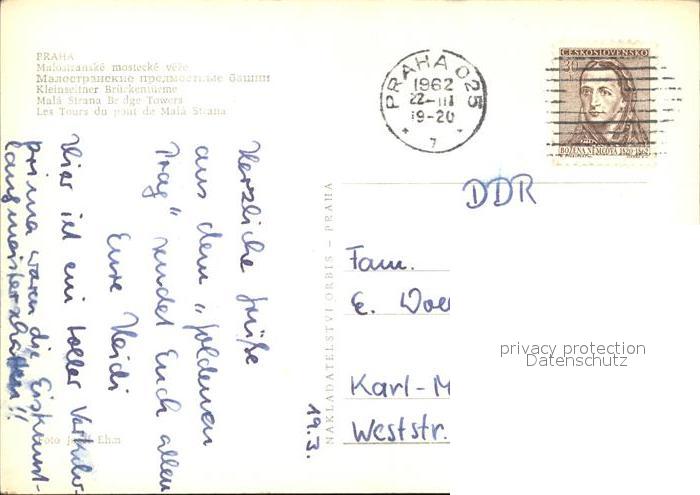 PRAHA
Malostranské mostecké věže
Малостранские предмостные башни
Kleinseitner Brückentürme
Malá Strana Bridge Towers
Les Tours du pont de Malá Strana
Herzliche Grüße
aus dem „goldenen
Prag" sendet Euch allen
Eure Heidi
Hier ist ein toller Verkehr
prima waren die Eiskunst-
laufmeisterschaften!!
19.3.
Foto Ehm
NAKLADATELSTVÍ ORBIS – PRAHA
PRAHA 025
1962
22-III
19-20
7
ČESKOSLOVENSKO
30
BOŽENA NĚMCOVÁ 1820-1862
DDR
Fam.
E. Woer
Karl-M
Weststr.
privacy protection
Datenschutz